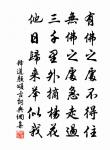 有佛之處不得住
無佛之處急走過
三千里外摘楊花
他日歸來舉似我
釋道顏頌古詞典網書